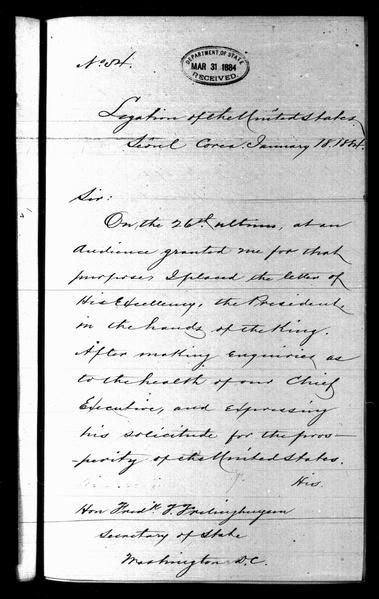 No 54.
DEPARTMENT OF STATE
MAR 31 1884
RECEIVED.
Legation of the United States.
Seoul Corea. January 18. 1884.
Sir:
On the 26th ultimo, at an
audience granted me for that
purpose, I placed the letter of
His Excellency, the President
in the hands of the King.
After making enquiries as
to the health of our Chief
Executive, and expressing
his solicitude for the pros-
-perity of the United States.
His
Hon Fredk T. Frelinghuysen
Secretary of State
Washington D.C.